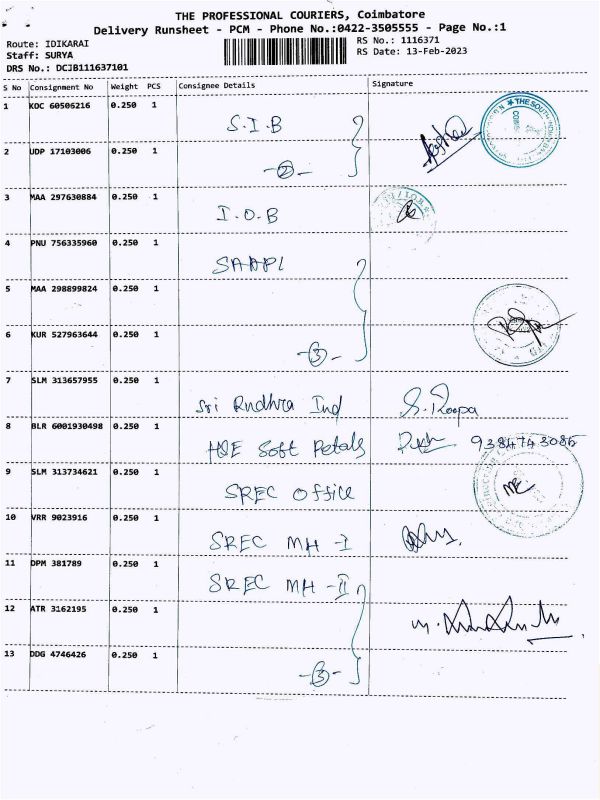 THE PROFESSIONAL COURIERS, Coimbatore
Delivery Runsheet - PCM - Phone No.:0422-3505555 - Page No.:1
Route: IDIKARAI
RS No.: 1116371
Staff: SURYA
RS Date: 13-Feb-2023
DRS No.: DCJB111637101
S No Consignment No Weight PCS Consignee Details Signature
1 KDC 60506216 0.250 1 S.I.B
2 UDP 17103006 0.250 1 -2-
3 MAA 297630884 0.250 1 I.O.B
4 PNU 756335960 0.250 1
5 MAA 298899824 0.250 1
6 KUR 527963644 0.250 1 -3-
7 SLM 313657955 0.250 1 Sri Rudhra Ind S. Roopa
8 BLR 6001930498 0.250 1 Soft Petals 9384743085
9 SLM 313734621 0.250 1 SREC Office
10 VRR 9023916 0.250 1 SREC MH - I
11 DPM 381789 0.250 1 SREC MH - II
12 ATR 3162195 0.250 1
13 DDG 4746426 0.250 1 -3-